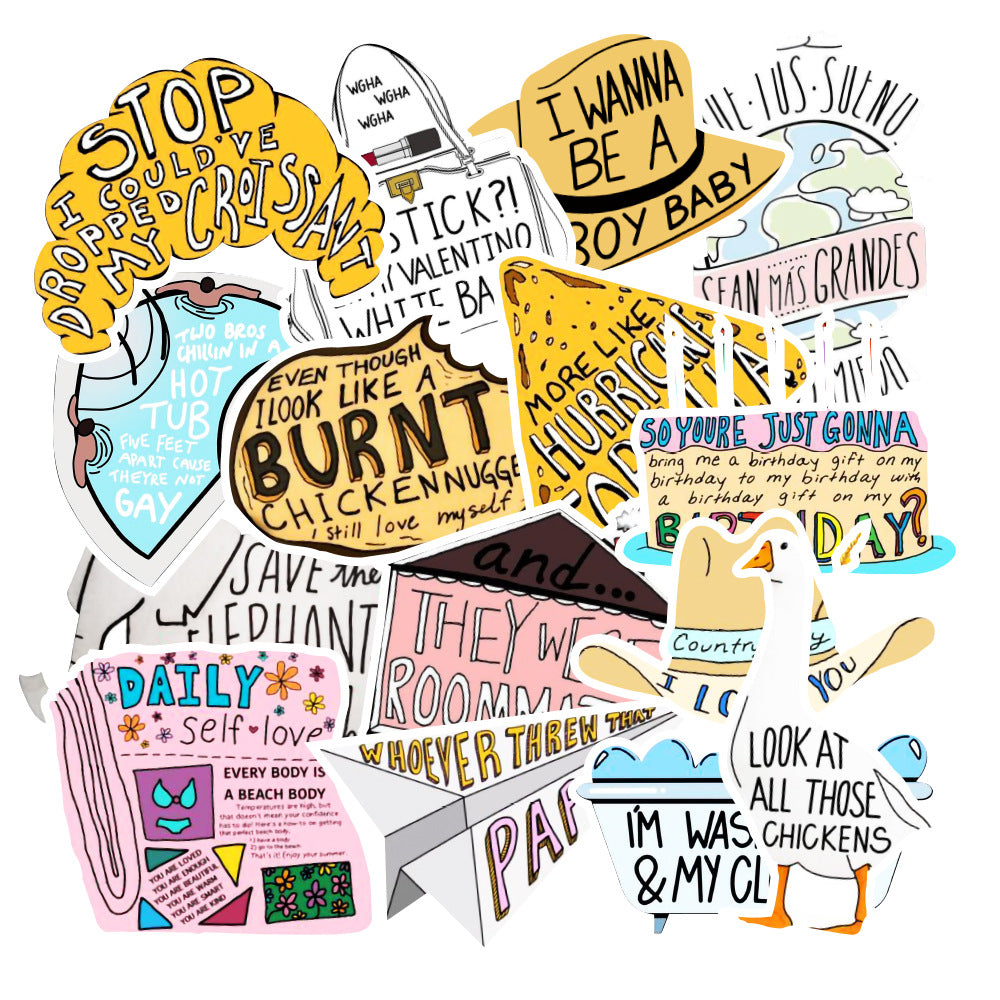 STOP
I COULD'VE
DROPPED
MY CROISSANT
WGHA
WGHA
WGHA
STICK?!
VALENTINO
WHITE BA
I WANNA
BE A
BOY BABY
TUS SUEÑO
SEAN MÁS GRANDES
MIEDO
TWO BROS
CHILLIN IN A
HOT
TUB
FIVE FEET
APART CAUSE
THEYRE NOT
GAY
EVEN THOUGH
I LOOK LIKE A
BURNT
CHICKEN NUGGE
i still love myself
MORE LIKE
HURRICANE
SO YOURE JUST GONNA
bring me a birthday gift on my
birthday to my birthday with
a birthday gift on my
BIRTHDAY?
SAVE the
ELEPHANT
and...
THEY WERE
ROOMMAT
Country
I LO YOU
DAILY
self love
EVERY BODY IS
A BEACH BODY
Temperatures are high, but
that doesn't mean your confidence
has to do! Here's a how-to on getting
that perfect beach body:
1) have a body
2) go to the beach
That's it! Enjoy your summer.
YOU ARE LOVED
YOU ARE ENOUGH
YOU ARE BEAUTIFUL
YOU ARE WARM
YOU ARE SMART
YOU ARE KIND
WHOEVER THREW THAT
PAP
I'M WAS
& MY CL
LOOK AT
ALL THOSE
CHICKENS